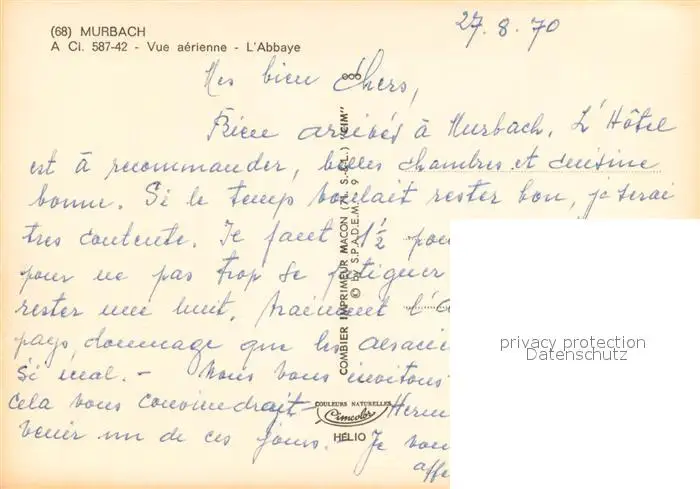 (68) MURBACH
A Ci. 587-42 - Vue aérienne - L'Abbaye
27.8.70
Mes bien chers,
Bien arrivés à Murbach. L'Hôtel
est à recommander, belles chambres et cuisine
bonne. Si le temps voulait rester bon, je serai
tres contente. Je faut 1½
pour ne pas trop se fatiguer
rester une nuit. Vraiment
pays, dommage que les
si mal. - Nous vous invitons
cela vous conviendrait -
venir un de ces jours. - Je
COMBIER IMPRIMEUR MACON (71. S.-&-L.) "CIM"
© by S.P.A.D.E.M. 9
COULEURS NATURELLES
Cimcolor
HÉLIO
privacy protection
Datenschutz